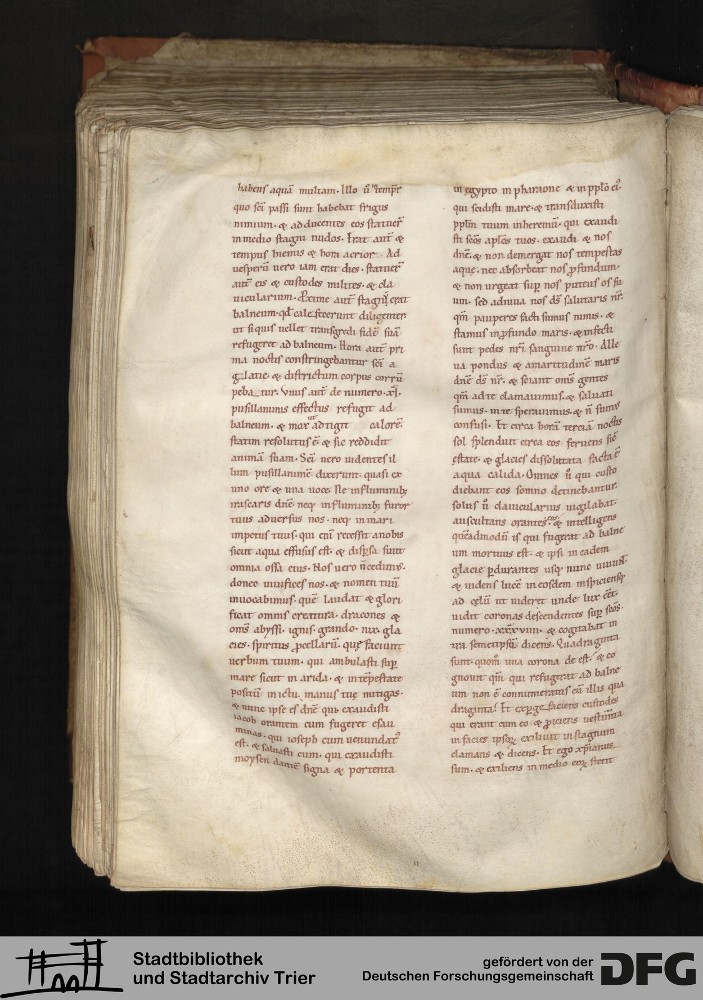 habens aquā multam. Illo ū tempr̄e
quo sc̄i passi sunt habebat frigus
nimium. & adducentes eos statuer̄
in medio stagni nudos. Erat aut̄ &
tempus hiemis & hora aerior. Ad
uesperū uero iam erat dies. statuer̄
aut̄ eis & custodes milites. & cla
uicularium. Proxime aut̄ stagnū erat
balneum. qd̄ calefecerunt diligenter
ut si quis uellet transgredi fidē suā
refugeret ad balneum. Hora aut̄ pri
ma noctis constringebantur sc̄i a
glatie. & districtum corpus corrū
peba tur. Vnus aut̄ de numero .xl.
pusillanimis effectus refugit ad
balneum. & mox ut adtigit calorē
statim resolutus ē & sic reddidit
animā suam. Sc̄i uero uidentes il
lum pusillanimē dixerunt. quasi ex
uno ore & una uoce. Ne in fluminib;
irascaris dn̄e neq; in fluminib; furor
tuus aduersus nos. neq; in mari
impetus tuus. qui eni recessit a nobis
sicut aqua effusus est. & dispsa sunt
omnia ossa eius. Nos uero n̄ cedimꝰ
donec uiuifices nos. & nomen tuū
inuocabimus. quē laudat & glori
ficat omnis creatura. dracones &
om̄s abyssi. ignis. grando. nix. gla
cies. spiritus pcellarū. quę faciunt
uerbum tuum. qui ambulasti sup
mare sicut in arida. & intēpestate
positū in ictu manus tuę mitigas.
& nunc ipse es dn̄e qui exaudisti
iacob orantem cum fugeret esau
minas. qui ioseph cum uenundatꝰ
est. & saluasti eum. qui exaudisti
moysen dantē signa & portenta
in egypto in pharaone & in pplō eiꝰ
qui scidisti mare. & transduxisti
pplm̄ tuum in heremū. qui exaudi
sti sc̄os apl̄os tuos. exaudi & nos
dn̄e. & non demergat nos tempestas
aquę. nec absorbeat nos pfundum.
& non urgeat sup nos puteus os su
um. sed adiuua nos ds̄ salutaris nr̄.
qm̄ pauperes facti sumus nimis. &
stamus in pfundo maris. & infecti
sunt pedes nr̄i sanguine nr̄o. Alle
ua pondus & amaritudinē maris
dn̄e ds̄ nr̄. & sciant om̄s gentes
qm̄ ad te clamauimus. & saluati
sumus. in te sperauimus. & n̄ sumꝰ
confusi. Et circa horā terciā noctis
sol splenduit circa eos feruens sic̄
ęstate. & glacies dissolutata facta ē
aqua calida. Omnes ū qui custo
diebant eos somno detinebantur.
solus ū clauicularius uigilabat.
auscultans orantes eos & intelligens
quēadmodū is qui fugerat ad balne
um mortuus est. & ipsi in eadem
glacie pdurantes usq; nunc uiuūt.
& uidens lucē in eosdem inspiciensq;
ad cęlū ut uideret unde lux eēt.
uidit coronas descendentes sup sc̄os.
numero .xxxviiii. & cogitabat in
tra semetipsū dicens. Quadraginta
sunt. quom̄ una corona de est. & co
gnouit qm̄ qui refugerat ad balne
um non ē connumeratus cū illis qua
draginta. Et expge faciens custodes
qui erant cum eo. & piciens uestimta
in facies ipsoꝝ. exiliuit in stagnum
clamans & dicens. Et ego xp̄ianus
sum. & exiliens in medio eoꝝ stetit
Stadtbibliothek
und Stadtarchiv Trier
gefördert von der
Deutschen Forschungsgemeinschaft
DFG